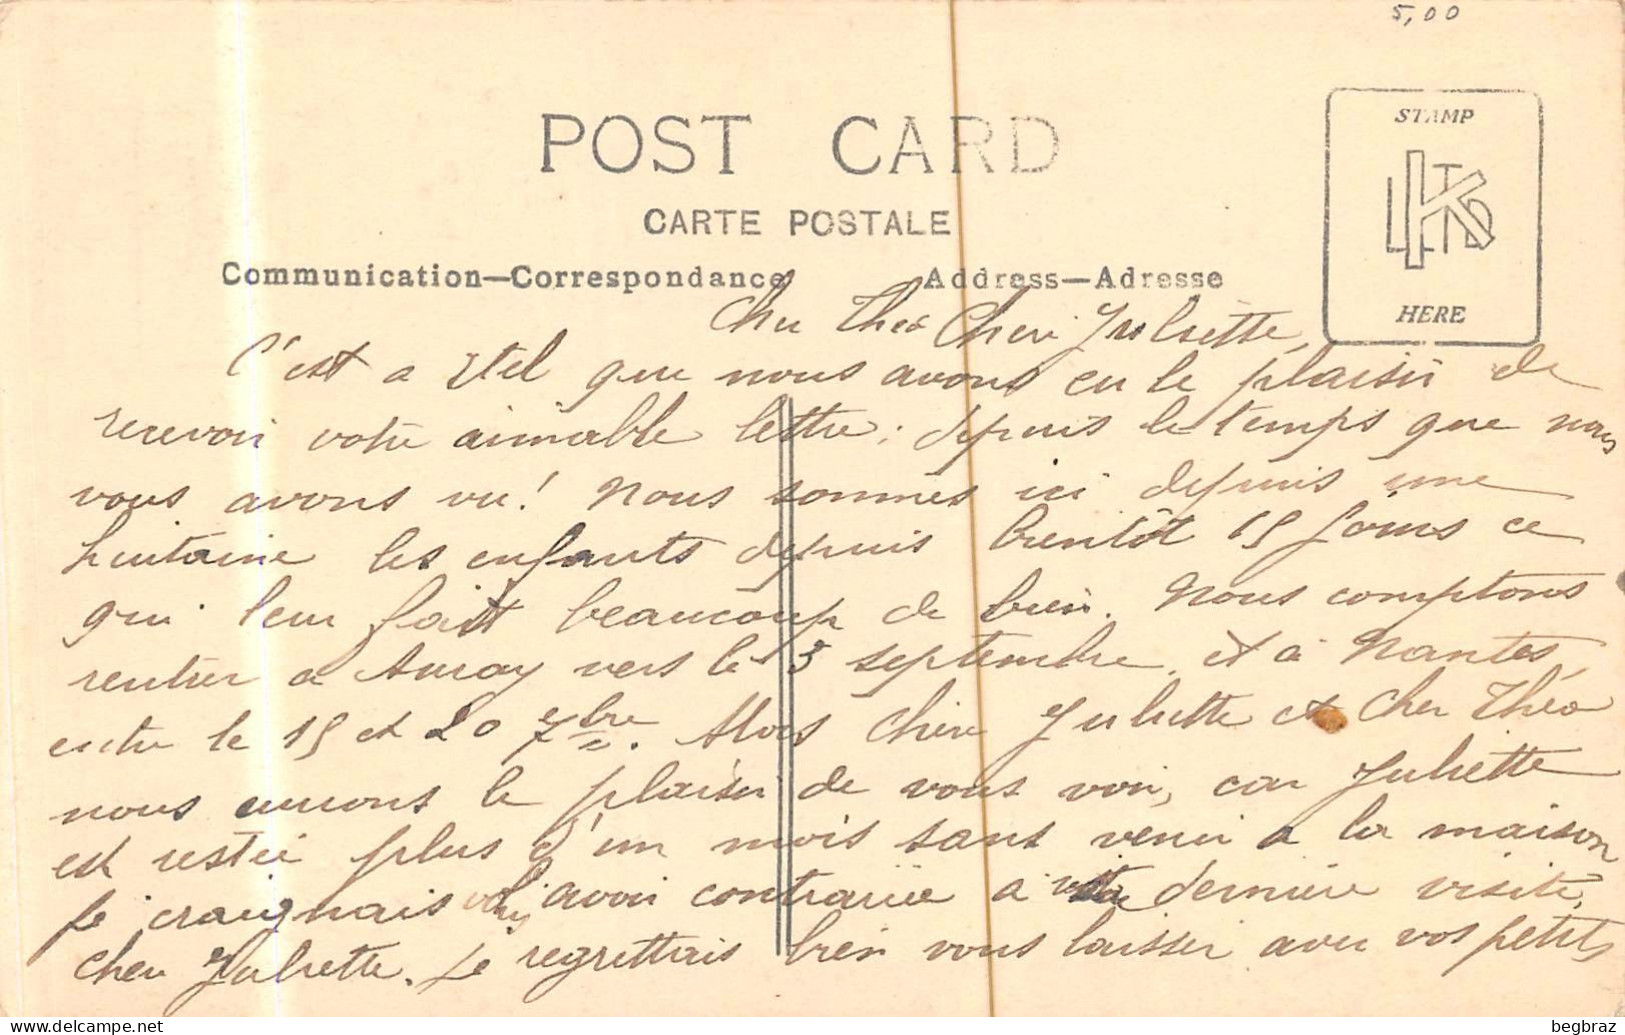 5,00
POST CARD
STAMP
KLTD
HERE
CARTE POSTALE
Communication—Correspondance
Address—Adresse
Cher Théo Chère Juliette,
C'est a Etel que nous avons eu le plaisir de
recevoir votre aimable lettre; depuis le temps que nous
vous avons vu! Nous sommes ici depuis une
huitaine les enfants depuis bientôt 15 jours ce
qui leur fait beaucoup de bien. Nous comptons
rentrer a Auray vers le 3 septembre, et à Nantes,
entre le 15 et 20 7bre. Alors chère Juliette et cher Théo
nous aurons le plaisir de vous voir, car Juliette
est restée plus d'un mois sans venir a la maison
je craignais l'avoir contrariée a dernière visite,
chère Juliette. Je regrettais bien vous laisser avec vos petits
begbraz